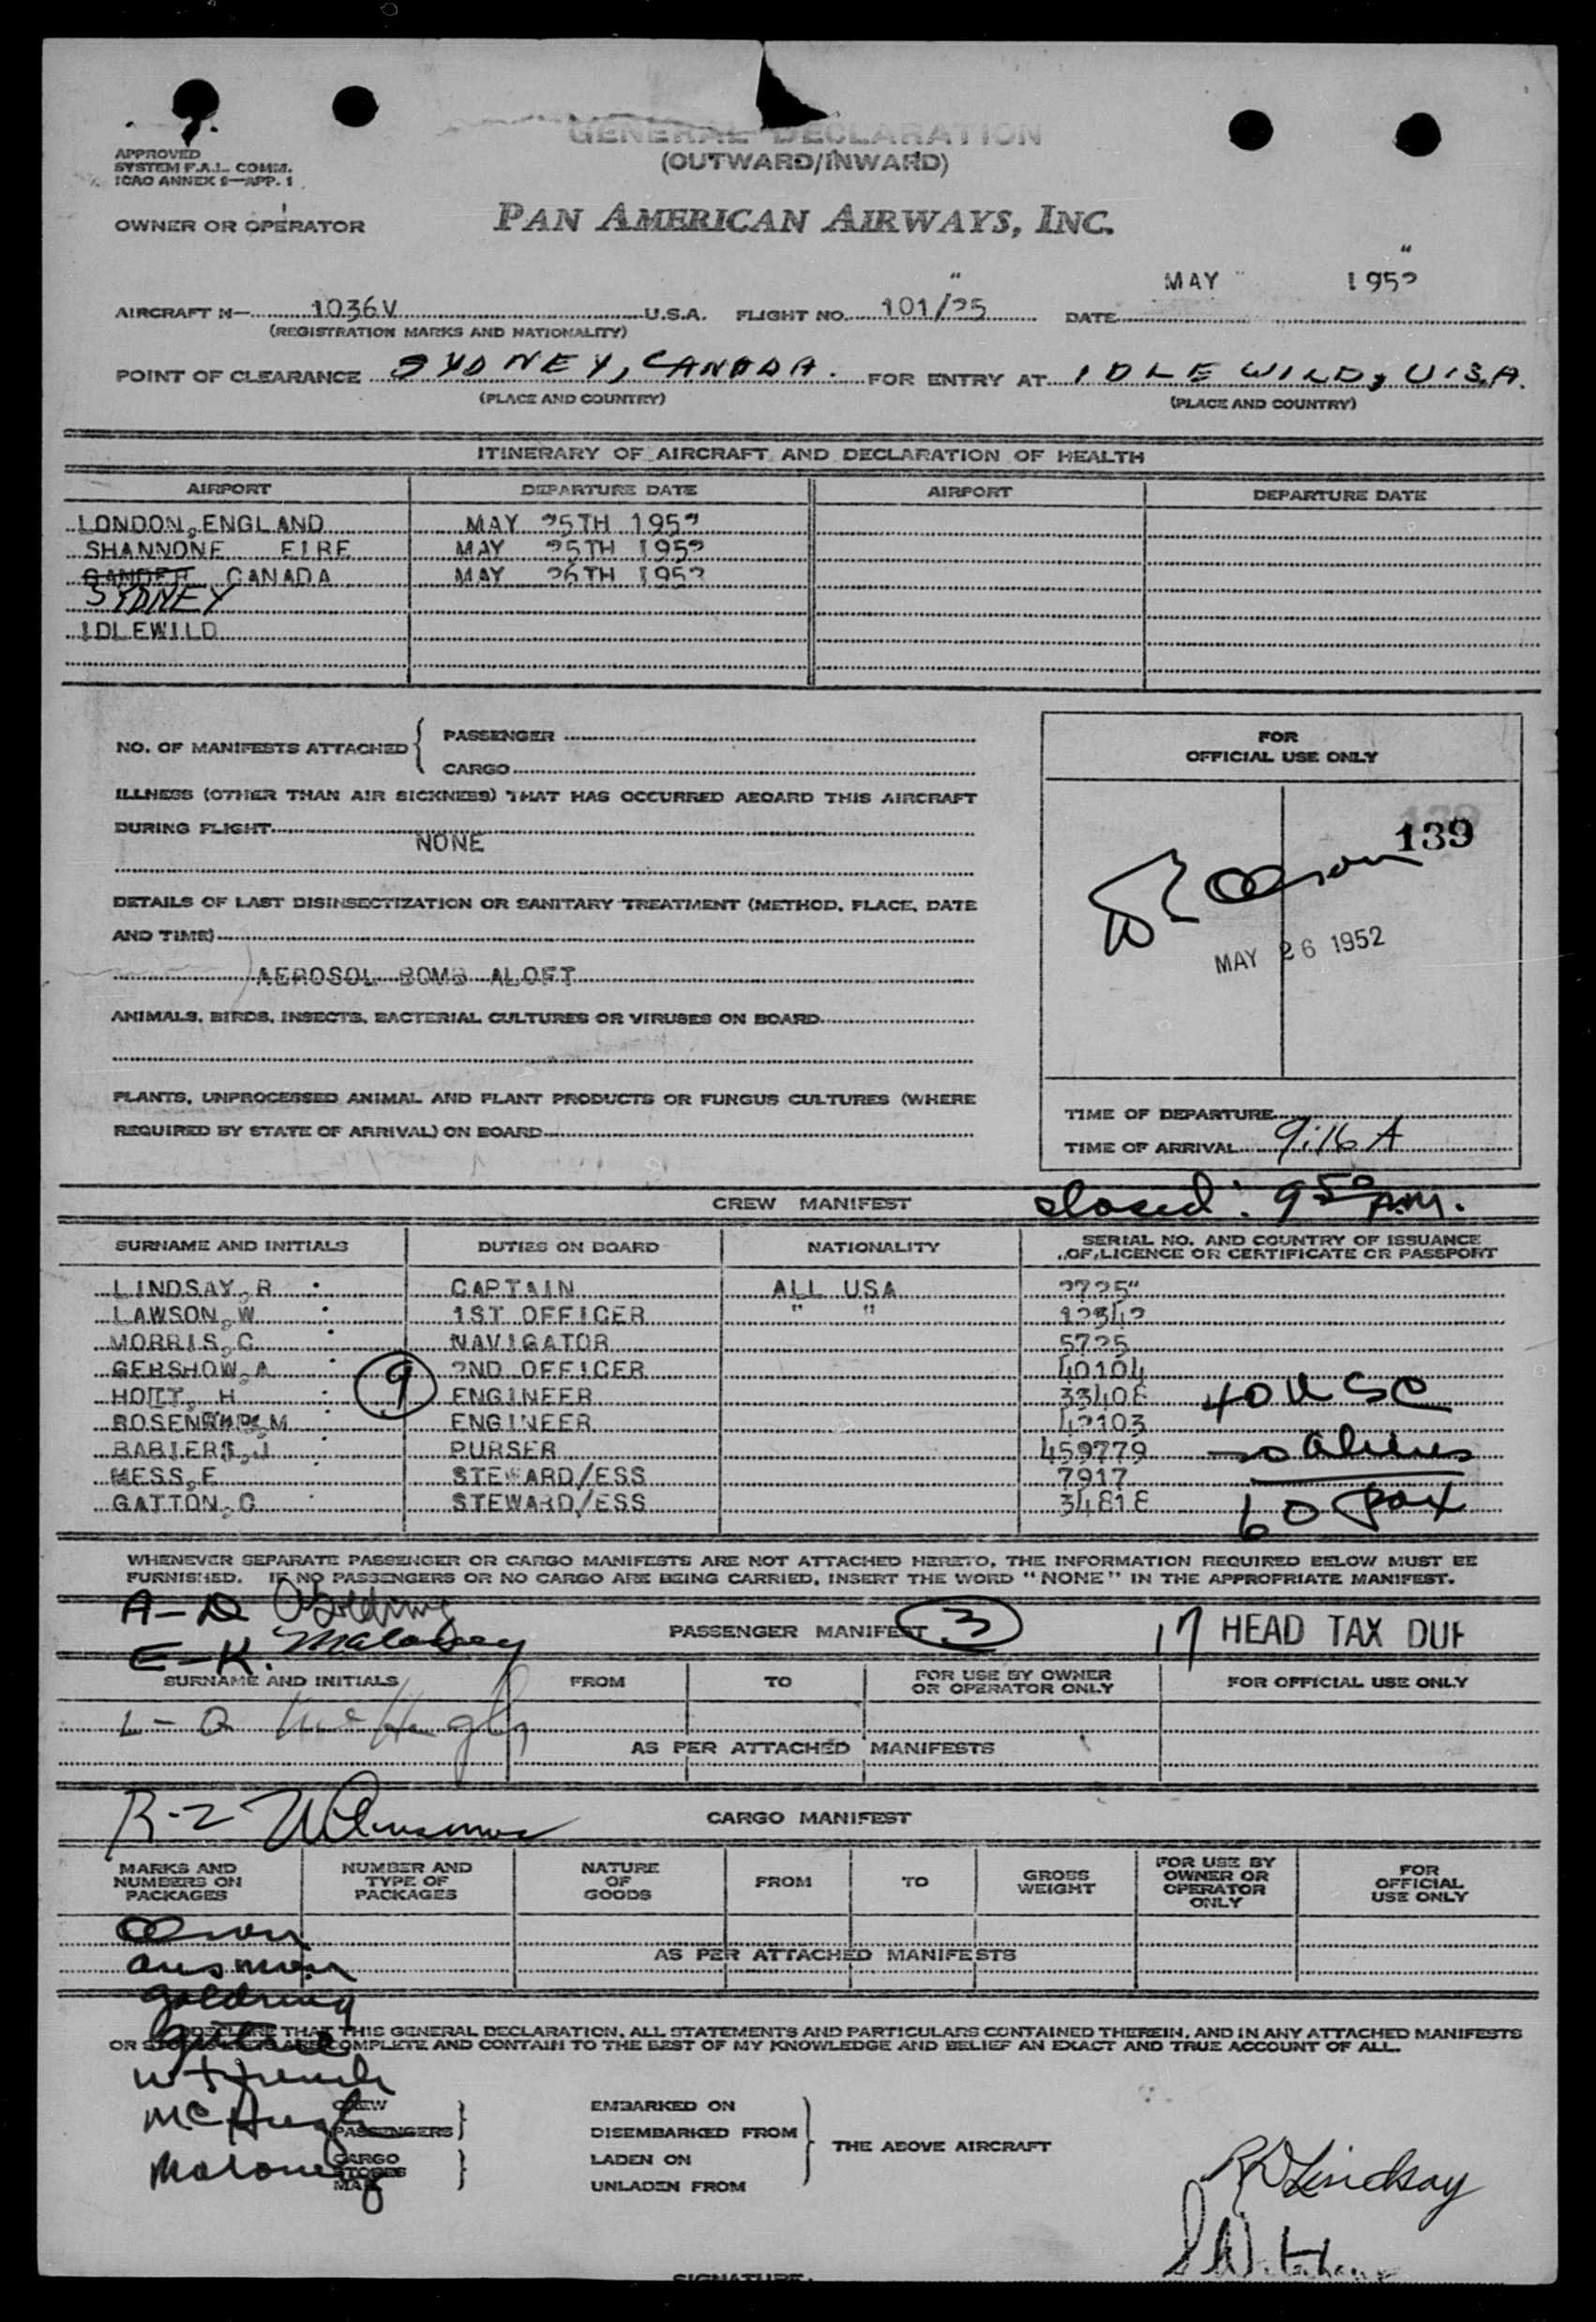 GENERAL DECLARATION
(OUTWARD/INWARD)
APPROVED
SYSTEM F.A.L. COMM.
ICAO ANNEX 9—APP. 1
OWNER OR OPERATOR PAN AMERICAN AIRWAYS, INC.
MAY 1952
AIRCRAFT N— 1036V U.S.A. FLIGHT NO. 101/25 DATE
(REGISTRATION MARKS AND NATIONALITY)
POINT OF CLEARANCE SYDNEY, CANADA. FOR ENTRY AT IDLEWILD, U.S.A.
(PLACE AND COUNTRY) (PLACE AND COUNTRY)
ITINERARY OF AIRCRAFT AND DECLARATION OF HEALTH
AIRPORT DEPARTURE DATE AIRPORT DEPARTURE DATE
LONDON, ENGLAND MAY 25TH 1952
SHANNONE EIRE MAY 25TH 1952
GANDER CANADA MAY 26TH 1952
SYDNEY
IDLEWILD
NO. OF MANIFESTS ATTACHED { PASSENGER
CARGO
FOR
OFFICIAL USE ONLY
ILLNESS (OTHER THAN AIR SICKNESS) THAT HAS OCCURRED ABOARD THIS AIRCRAFT
DURING FLIGHT
NONE
139
Olson
MAY 26 1952
DETAILS OF LAST DISINSECTIZATION OR SANITARY TREATMENT (METHOD, PLACE, DATE
AND TIME)
AEROSOL BOMB ALOFT
ANIMALS, BIRDS, INSECTS, BACTERIAL CULTURES OR VIRUSES ON BOARD
PLANTS, UNPROCESSED ANIMAL AND PLANT PRODUCTS OR FUNGUS CULTURES (WHERE
REQUIRED BY STATE OF ARRIVAL) ON BOARD
TIME OF DEPARTURE
TIME OF ARRIVAL 9:16 A
CREW MANIFEST closed: 9 50 A.M.
SURNAME AND INITIALS DUTIES ON BOARD NATIONALITY SERIAL NO. AND COUNTRY OF ISSUANCE
OF LICENCE OR CERTIFICATE OR PASSPORT
LINDSAY, R CAPTAIN ALL USA 2725
LAWSON, W 1ST OFFICER " " 12342
MORRIS, C NAVIGATOR 5725
GERSHOW, A 2ND OFFICER 40104
HOTT, H 9 ENGINEER 33408 40 USC
M ENGINEER 42103
BABIERS, J PURSER 459779 20 Aliens
MESS, E STEWARD/ESS 7917
GATTON, C STEWARD/ESS 34818 60 Pax
WHENEVER SEPARATE PASSENGER OR CARGO MANIFESTS ARE NOT ATTACHED HERETO, THE INFORMATION REQUIRED BELOW MUST BE
FURNISHED. IF NO PASSENGERS OR NO CARGO ARE BEING CARRIED, INSERT THE WORD "NONE" IN THE APPROPRIATE MANIFEST.
A-D Goldring
E-K. Maloney PASSENGER MANIFEST 3 17 HEAD TAX DUE
SURNAME AND INITIALS FROM TO FOR USE BY OWNER
OR OPERATOR ONLY FOR OFFICIAL USE ONLY
L-Q McHugh
AS PER ATTACHED MANIFESTS
R-Z
CARGO MANIFEST
MARKS AND
NUMBERS ON
PACKAGES NUMBER AND
TYPE OF
PACKAGES NATURE
OF
GOODS FROM TO GROSS
WEIGHT FOR USE BY
OWNER OR
OPERATOR
ONLY FOR
OFFICIAL
USE ONLY
Olson
AS PER ATTACHED MANIFESTS
Ausman
Goldring
DECLARE THAT THIS GENERAL DECLARATION, ALL STATEMENTS AND PARTICULARS CONTAINED THEREIN, AND IN ANY ATTACHED MANIFESTS
OR ARE COMPLETE AND CONTAIN TO THE BEST OF MY KNOWLEDGE AND BELIEF AN EXACT AND TRUE ACCOUNT OF ALL.
French
McHugh
Maloney
CREW
PASSENGERS }
CARGO
STORES
MAIL }
EMBARKED ON
DISEMBARKED FROM
LADEN ON
UNLADEN FROM
} THE ABOVE AIRCRAFT
R D Lindsay
SIGNATURE